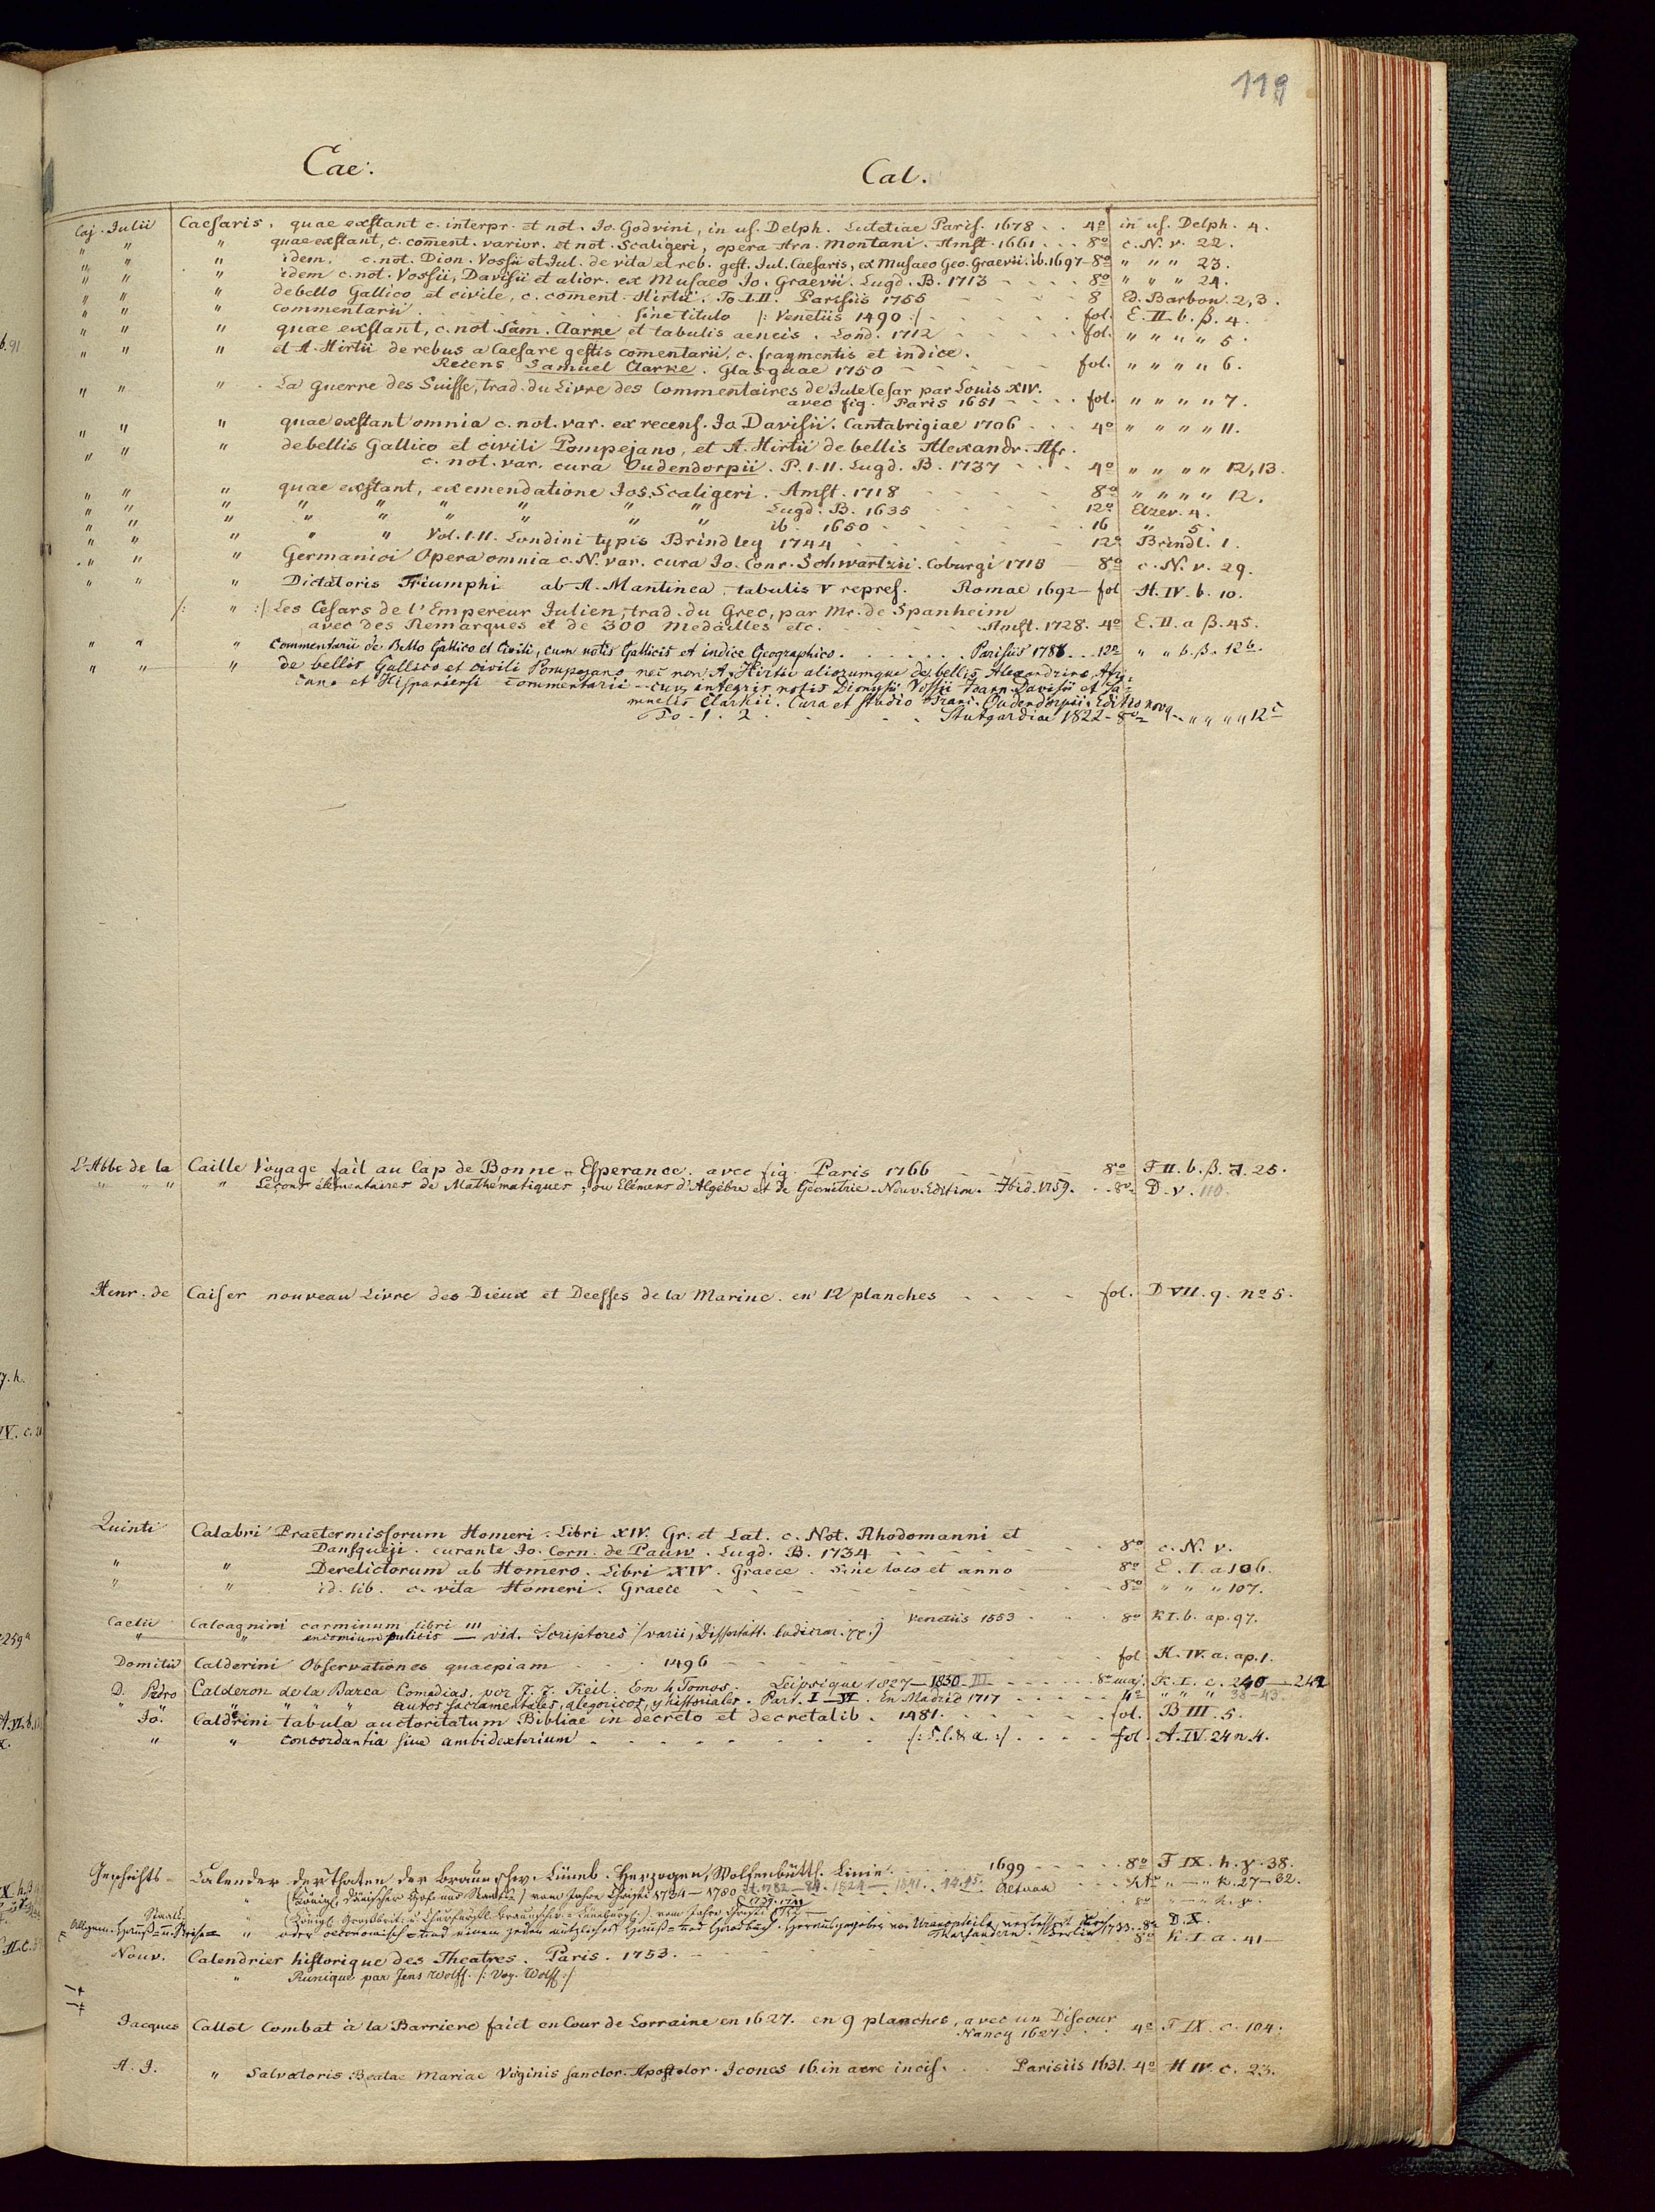 119
Cae. Cal.
Caj. Julii Caesaris, quae exstant c. interpr. et not. Jo. Godvini, in us. Delph. Lutetiae Paris. 1678 . . 4o in us. Delph. 4.
" " " quae exstant, c. coment. varior. et not. Scaligeri, opera Arn. Montani. Amst. 1661 . . . 8o c. N. v. 22.
" " " idem. c. not. Dion. Vossii et Jul. de vita et reb. gest. Jul. Caesaris, ex Musaeo Geo. Graevii. ib. 1697 - 8o " " " 23.
" " " idem c. not. Vossii, Davisii et alior. ex Musaeo Jo. Graevii. Lugd. B. 1713 - - - - 8o " " " 24.
" " " de bello Gallico et civile, c. coment. Hirtii. To. I. II. Parisiis 1755 - - - - 8 Ed. Barbon. 2, 3.
" " " commentarii . . . . . Sine titulo /: Venetiis 1490 :/ - - - - fol. E. II. b. β. 4.
" " " quae exstant, c. not. Sam. Clarke et tabulis aeneis. Lond. 1712 - - - - fol. " " " " 5.
" " " et A. Hirtii de rebus a Caesare gestis comentarii, c. fragmentis et indice.
Recens Samuel Clarke. Glasguae 1750 - - - - - fol. " " " " 6.
" " " La guerre des Suisse, trad. du Livre des Commentaires de Jule Cesar par Louis XIV.
avec fig. Paris 1651 - - - - fol. " " " " 7.
" " " quae exstant omnia c. not. var. ex recens. Jo Davisii. Cantabrigiae 1706 . . . 4o " " " " 11.
" " " de bellis Gallico et civili Pompejano, et A. Hirtii de bellis Alexandr. Afr.
c. not. var. cura Oudendorpii. P. I. II. Lugd. B. 1737 - - - 4o " " " " 12, 13.
" " " quae exstant, ex emendatione Jos. Scaligeri. Amst. 1718 - - - - 8o " " " " 12.
" " " " " " " " " Lugd. B. 1635 - - - - 12o Elzev. 4.
" " " " " " " " " ib. 1650 - - - - 16 " 5.
" " " " " Vol. I. II. Londini typis Brindley 1744 - - - - 12o Brindl. 1.
" " " Germanici Opera omnia c. N. var. cura Jo. Conr. Schwartzii. Coburgi 1715 - 8o c. N. v. 29.
" " " Dictatoris Triumphi ab A. Mantinea, tabulis V repres. Romae 1692 - fol H. IV. b. 10.
/: " :/ Les Cesars de l'Empereur Julien, trad. du Grec, par Mr. de Spanheim
avec des Remarques et de 300 medailles etc. - - - - Amst. 1728. 4o E. II. a β. 45.
" " " Commentarii de Bello Gallico et Civili, cum notis Gallicis et indice Geographico . . . . . . Parisiis 1788. . . 12o " " b. β. 12b.
" " " de bellis Gallico et civili Pompejano nec non A. Hirtii aliorumque de bellis Alexandrino, Afri-
cano et Hispaniensi commentarii - cum integris notis Dionysii Vossii Joann. Davisii et Sa-
muelis Clarkii. Cura et studio Franc. Oudendorpii. Editio nova
To. 1. 2. . . . . Stutgardiae 1822 - 8o " " " " 12c
L'Abbe de la Caille Voyage fait au Cap de Bonne-Esperance. avec fig. Paris 1766 - - - - 8o F II. b. β. 7. 25.
" " " " Leçons élémentaires de Mathématiques, ou Elémens d'Algèbre et de Géométrie. Nouv. Edition. Ibid. 1759. . . 8o D. V. 110.
Henr. de Caiser nouveau Livre des Dieux et Deesses de la Marine. en 12 planches - - - - fol. D VII. q. no 5.
Quinti Calabri Praetermissorum Homeri. Libri XIV. Gr. et Lat. c. Not. Rhodomanni et
Dansqueji. curante Jo. Corn. de Pauw. Lugd. B. 1734 - - - - 8o c. N. v.
" " Derelictorum ab Homero. Libri XIV. Graece. Sine loco et anno 8o E. I. a 106.
" " id. lib. c. vita Homeri. Graece - - - - 8o " " " 107.
Caelii Calcagnini carminum libri III Venetiis 1553 - - 8o K I. b. ap. 97.
" " encomium pulicis - vid. Scriptores /varii, Dissertatt. ludicrar.
Domitii Calderini Observationes quaepiam . . . 1496 - - - - fol H. IV. a. ap. 1.
D. Pedro Calderon de la Barca Comedias, por J. J. Keil. En 4 Tomos. Leipsique 1827-1830 III - - - 8o maj. K. I. c. 240-242
" " " " " autos sacramentales, alegoricos, y historiales. Part. I-VI. En Madrid 1717 - - - - 4o " " " 38-43.
Jo. Calderini tabula auctoritatum Bibliae in decreto et decretalib. 1481. - - - - fol. B III. 5.
" " concordantia sive ambidexterium - - - - /: S. l. & a. :/ . . . . fol A. IV. 24 n. 4.
Geschichts- Calender der Thaten der Braunschw. Lüneb. Herzogen, Wolfenbüttl. Linie. . . . 1699 - - - 8o F IX. h. γ. 38.
" (Königl. Dänischer Hof- und Staats-) vom Jahre Christi 1734-1780. 1782-84. 1824-1841. 44. 45. Altona " - " k. 27-32.
Staats- " (Königl. Großbrit. u. Churfürstl. Braunschw. Lüneburg.) vom Jahre Christi
Allgem. Hauß- u. Reise- " oder oeconomisch und einem jeden nützliches Hauß- und Handbuch. Herausgegeben von Uranophilo
Berlin 1733. 8o D. X.
Nouv. Calendrier historique des Theatres. Paris. 1753. - - - - 8o K. I. a. 41
" Runique par Jens Wolff. /: Voy. Wolff :/
Jacques Callot Combat à la Barriere faict en Cour de Lorraine en 1627. en 9 planches, avec un Discour
Nancy 1627. . . 4o F IX. c. 104.
A. J. " Salvatoris Beatae Mariae Virginis sanctor. Apostolor. Icones 16. in aere incis. . . Parisiis 1631. 4o H IV. c. 23.